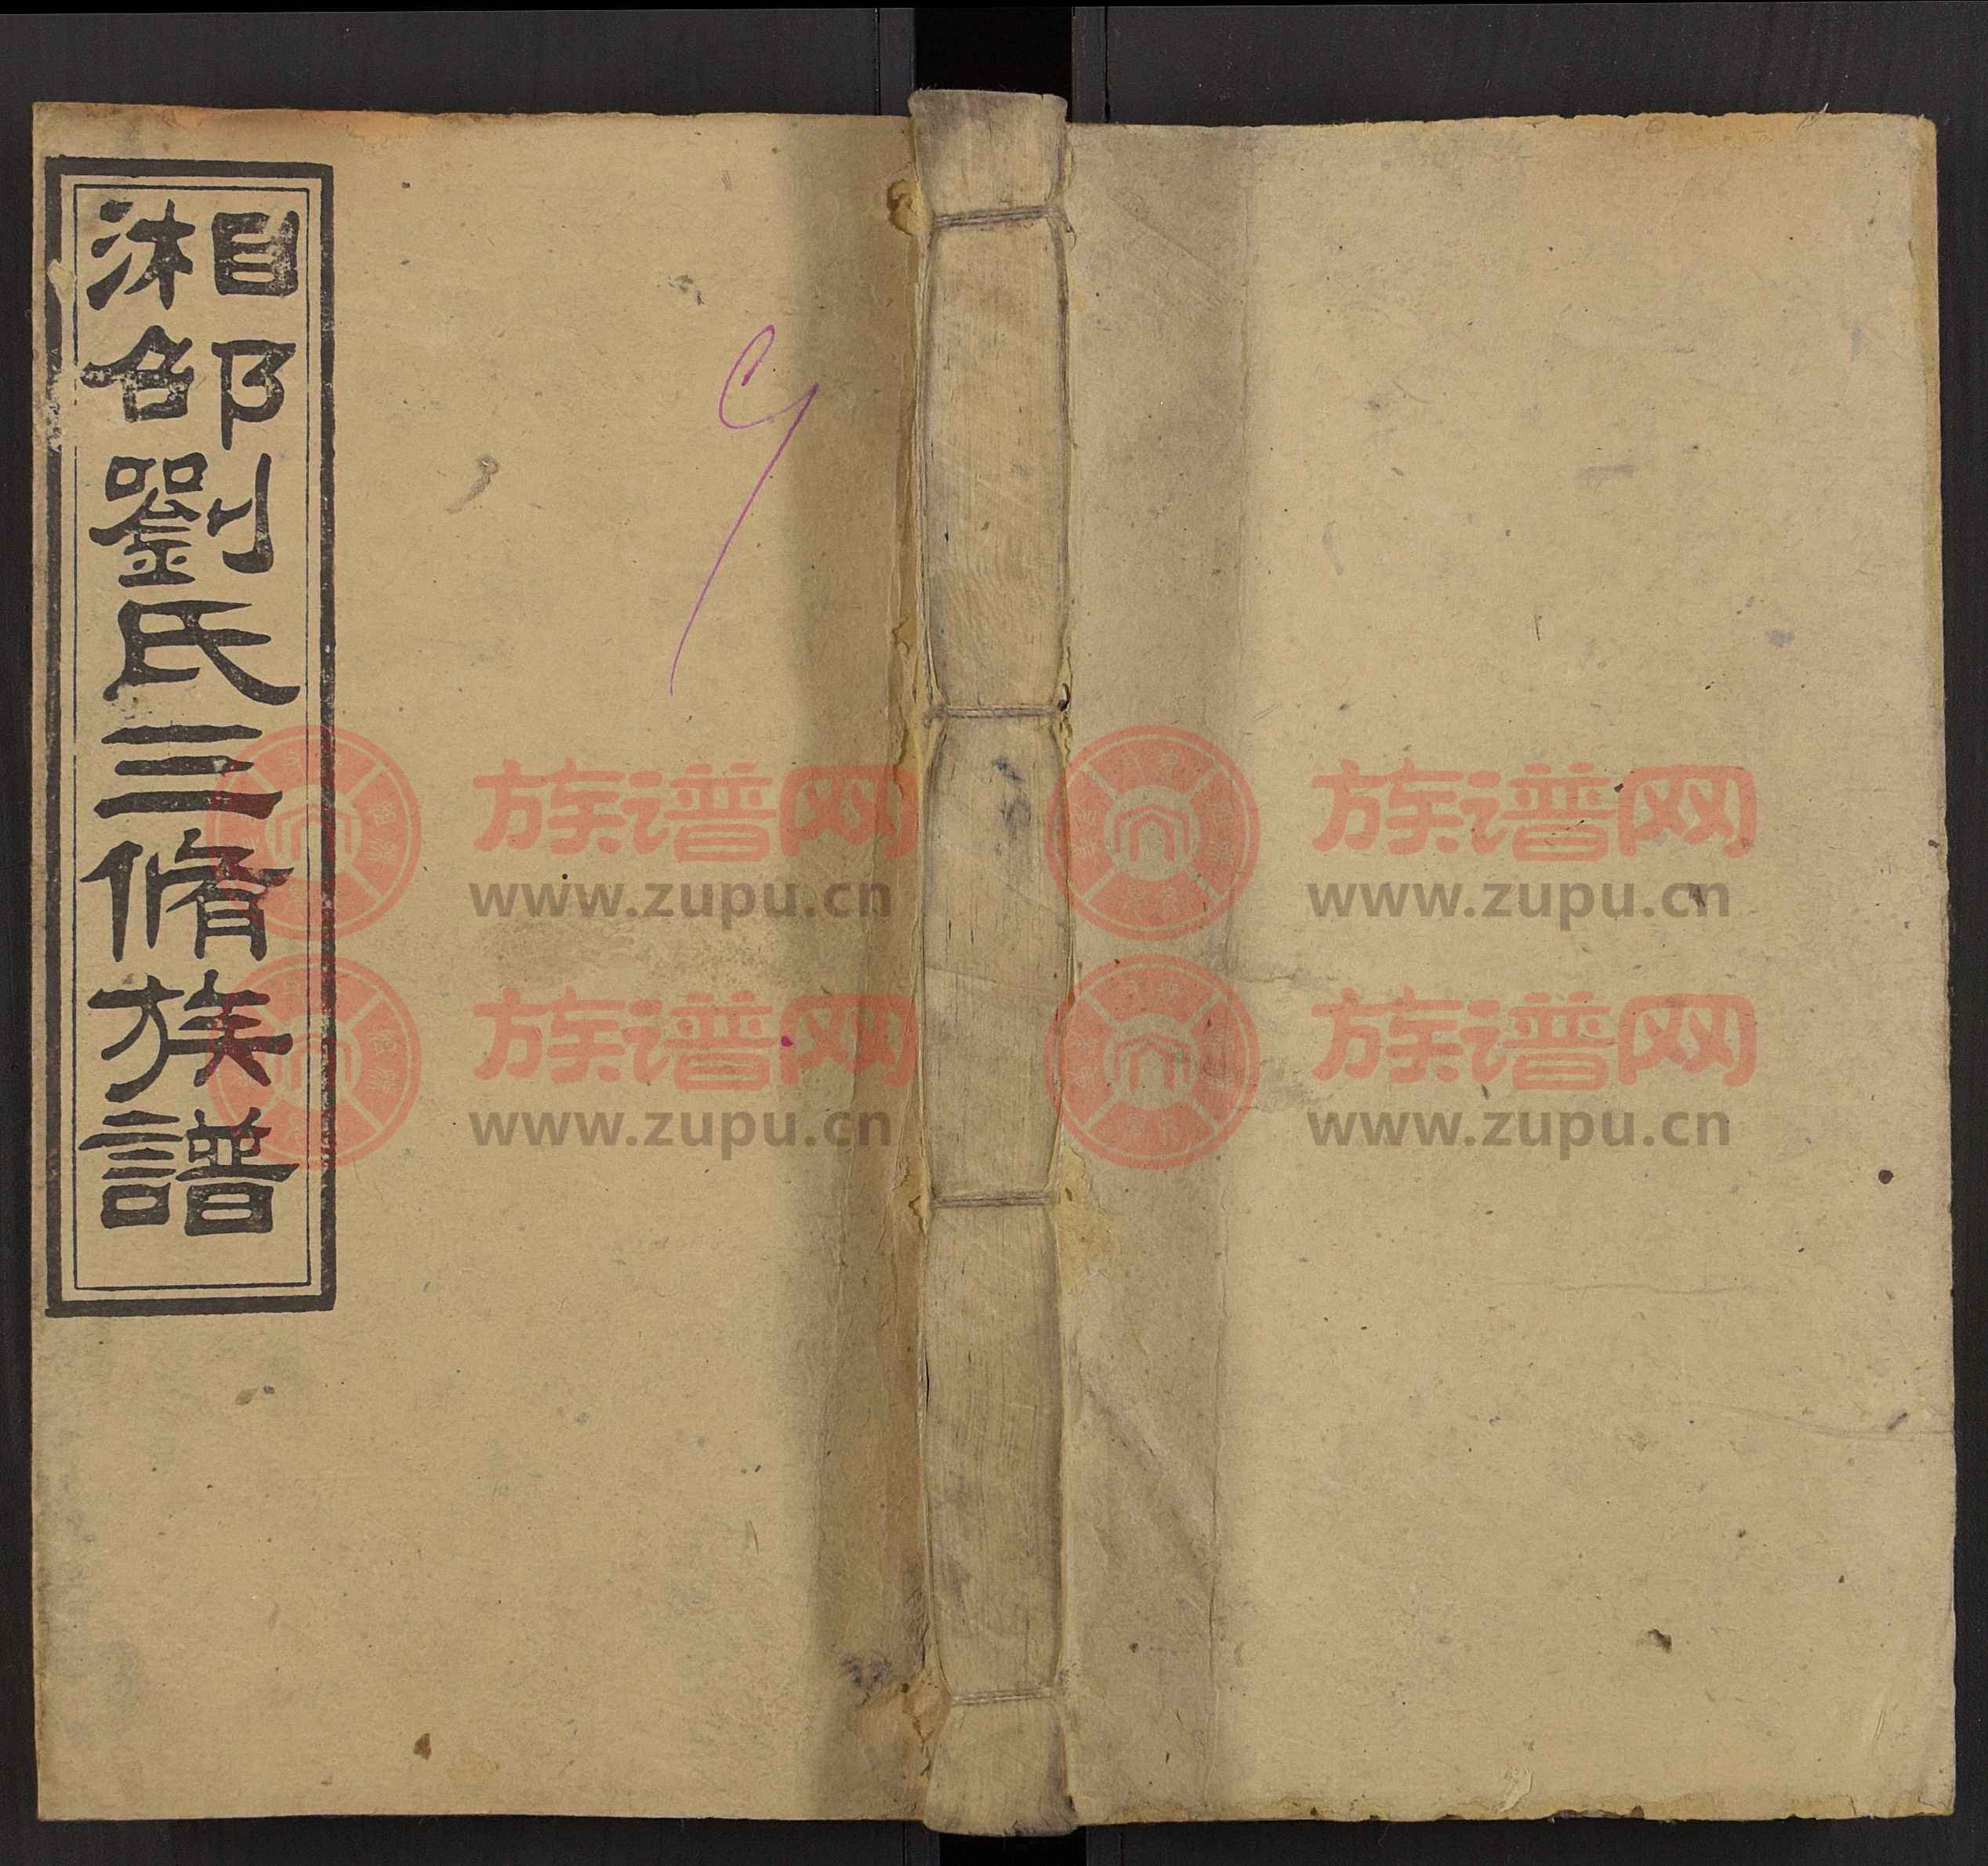 湘邵劉氏三脩族譜
9
族谱网 族谱网
www.zupu.cn www.zupu.cn
族谱网 族谱网
www.zupu.cn www.zupu.cn